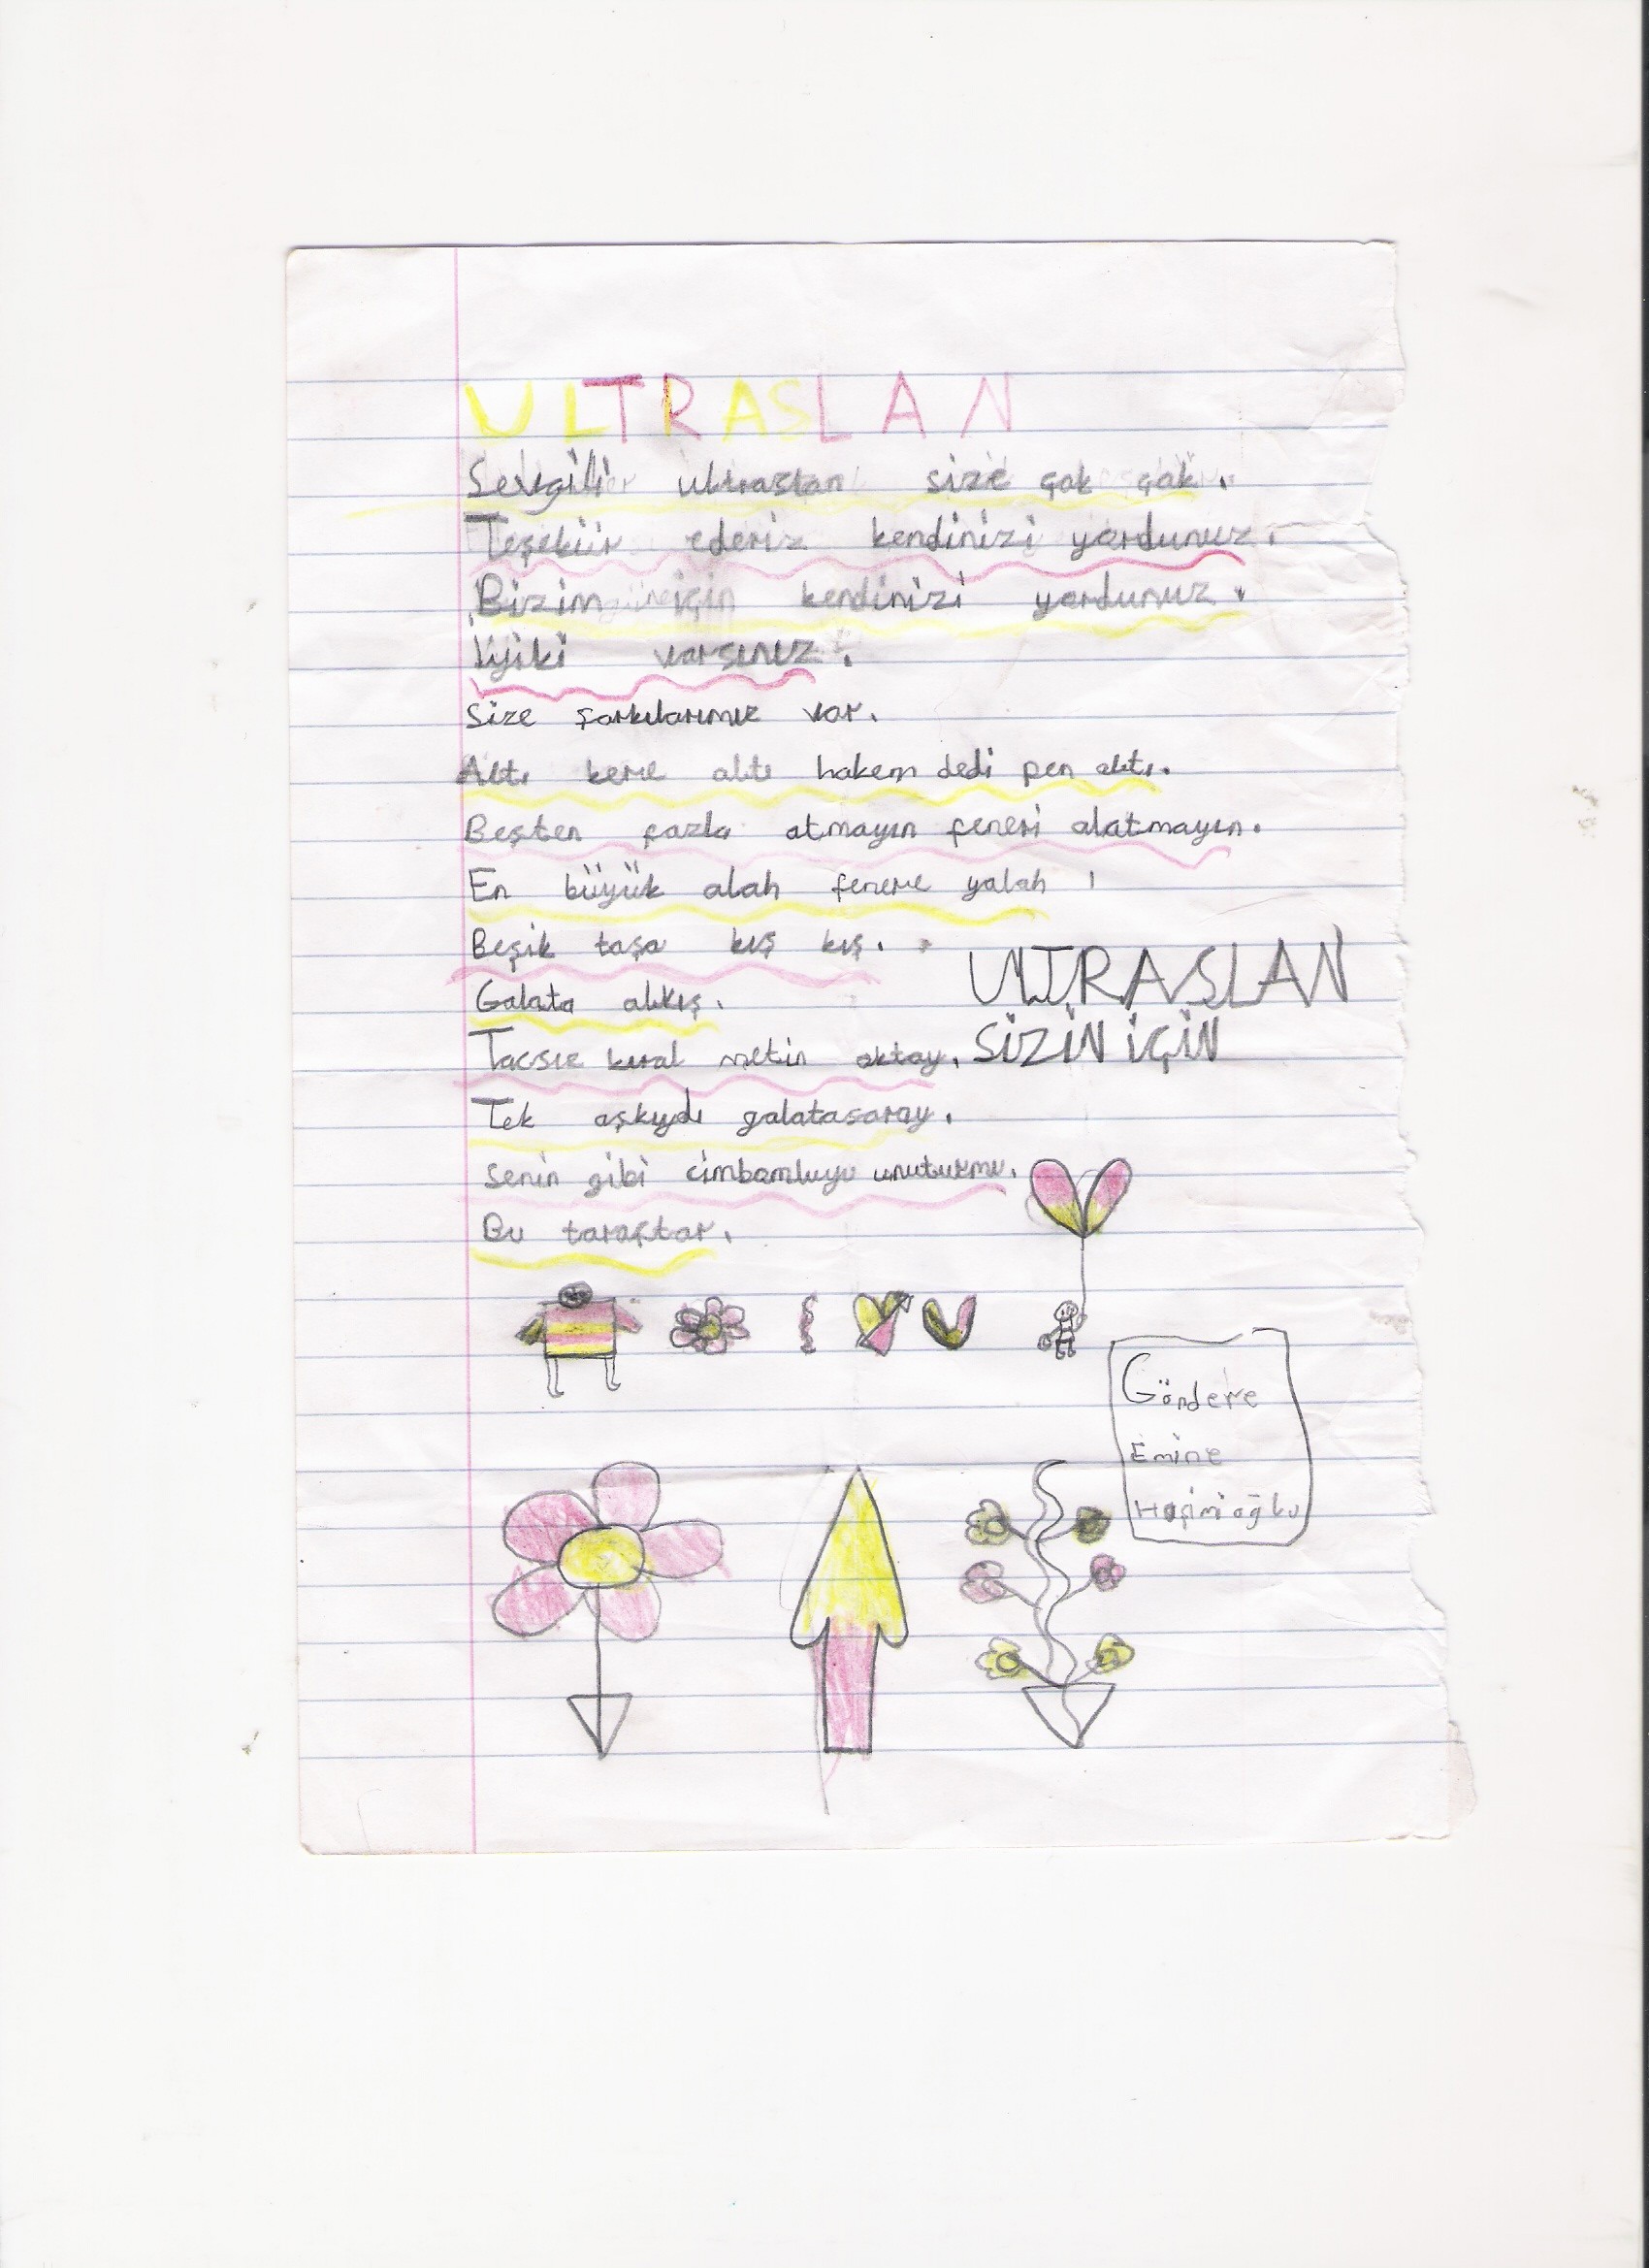 ULTRASLAN
Sevgili ultraslan size çok çok.
Teşekür ederiz kendinizi yordunuz.
Bizim için kendinizi yordunuz.
İyiki varsınız.
Size şarkılarımız var.
Altı kere altı hakem dedi pen altı.
Beşten fazla atmayın feneri alatmayın.
En büyük alah fenere yalah !
Beşik taşa kış kış.
Galata alkış.
Tacsız kıral metin oktay.
Tek aşkıydı galatasaray.
Senin gibi cimbomluyu unuturmu.
Bu taraftar.
ULTRASLAN
SİZİN İÇİN
Göndere
Emine